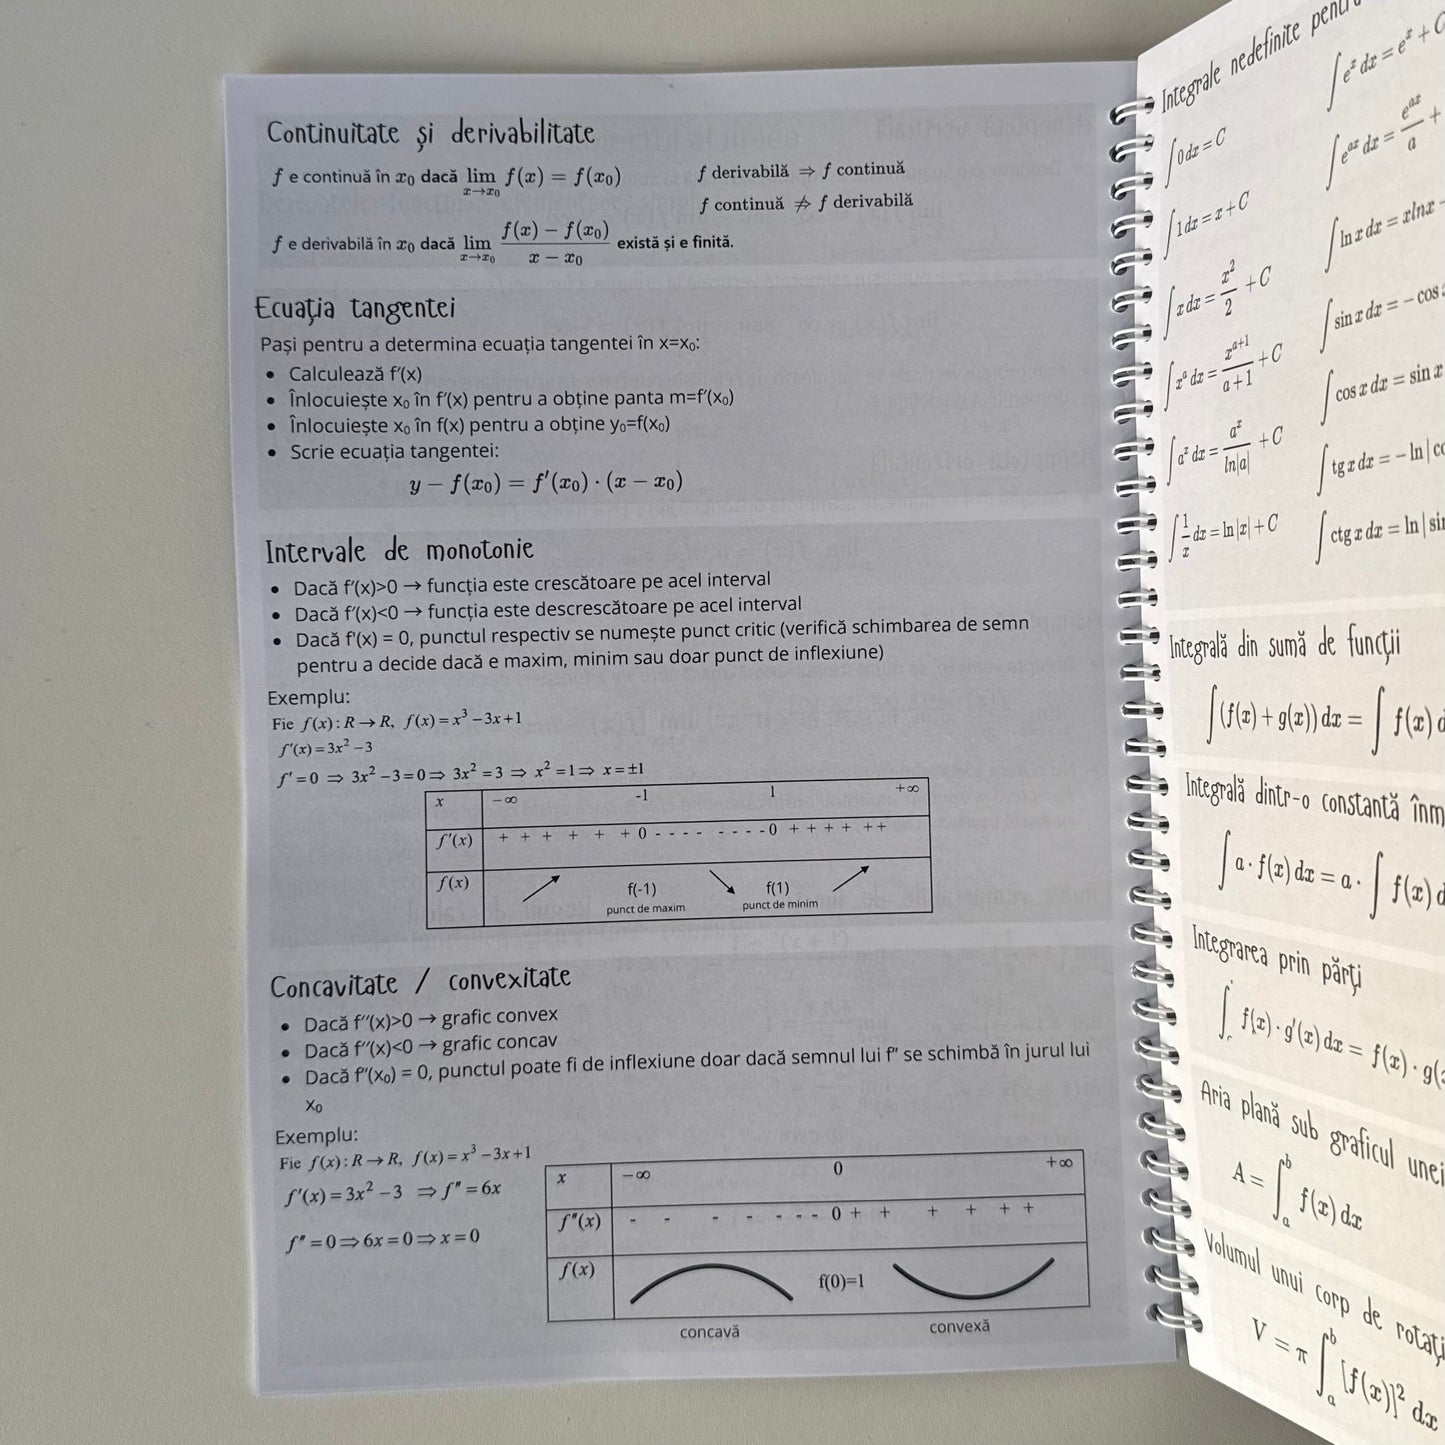 Continuitate și derivabilitate
f e continuă în x₀ dacă lim x→x₀ f(x) = f(x₀)
f derivabilă ⇒ f continuă
f continuă ⇏ f derivabilă
f e derivabilă în x₀ dacă lim x→x₀ (f(x) − f(x₀))/(x − x₀) există și e finită.
Ecuația tangentei
Pași pentru a determina ecuația tangentei în x=x₀:
• Calculează f′(x)
• Înlocuiește x₀ în f′(x) pentru a obține panta m=f′(x₀)
• Înlocuiește x₀ în f(x) pentru a obține y₀=f(x₀)
• Scrie ecuația tangentei:
y − f(x₀) = f′(x₀) · (x − x₀)
Intervale de monotonie
• Dacă f′(x)>0 → funcția este crescătoare pe acel interval
• Dacă f′(x)<0 → funcția este descrescătoare pe acel interval
• Dacă f'(x) = 0, punctul respectiv se numește punct critic (verifică schimbarea de semn
pentru a decide dacă e maxim, minim sau doar punct de inflexiune)
Exemplu:
Fie f(x): R → R, f(x) = x³ − 3x + 1
f′(x) = 3x² − 3
f′ = 0 ⇒ 3x² − 3 = 0 ⇒ 3x² = 3 ⇒ x² = 1 ⇒ x = ±1
x −∞ -1 1 +∞
f′(x) + + + + + + 0 - - - - - - - - 0 + + + + + +
f(x) ↗ f(-1) ↘ f(1) ↗
punct de maxim punct de minim
Concavitate / convexitate
• Dacă f′′(x)>0 → grafic convex
• Dacă f′′(x)<0 → grafic concav
• Dacă f″(x₀) = 0, punctul poate fi de inflexiune doar dacă semnul lui f″ se schimbă în jurul lui
x₀
Exemplu:
Fie f(x): R → R, f(x) = x³ − 3x + 1
f′(x) = 3x² − 3 ⇒ f″ = 6x
f″ = 0 ⇒ 6x = 0 ⇒ x = 0
x −∞ 0 +∞
f″(x) - - - - - - - 0 + + + + + +
f(x) f(0)=1
concavă convexă
Integrale nedefinite
∫0 dx = C
∫eˣ dx = eˣ + C
∫1 dx = x + C
∫eᵃˣ dx = eᵃˣ/a +
∫x dx = x²/2 + C
∫ln x dx = xlnx −
∫xᵃ dx = xᵃ⁺¹/(a+1) + C
∫sin x dx = − cos
∫aˣ dx = aˣ/ln|a| + C
∫cos x dx = sin x
∫1/x dx = ln|x| + C
∫tg x dx = − ln |
∫ctg x dx = ln |
Integrală din sumă de funcții
∫(f(x) + g(x)) dx = ∫ f(x)
Integrală dintr-o constantă
∫ a · f(x) dx = a · ∫ f(x)
Integrarea prin părți
∫ f(x) · g′(x) dx = f(x) ·
Aria plană sub graficul unei
A = ∫ₐᵇ f(x) dx
Volumul unui corp de
V = π ∫ₐᵇ [f(x)]² dx